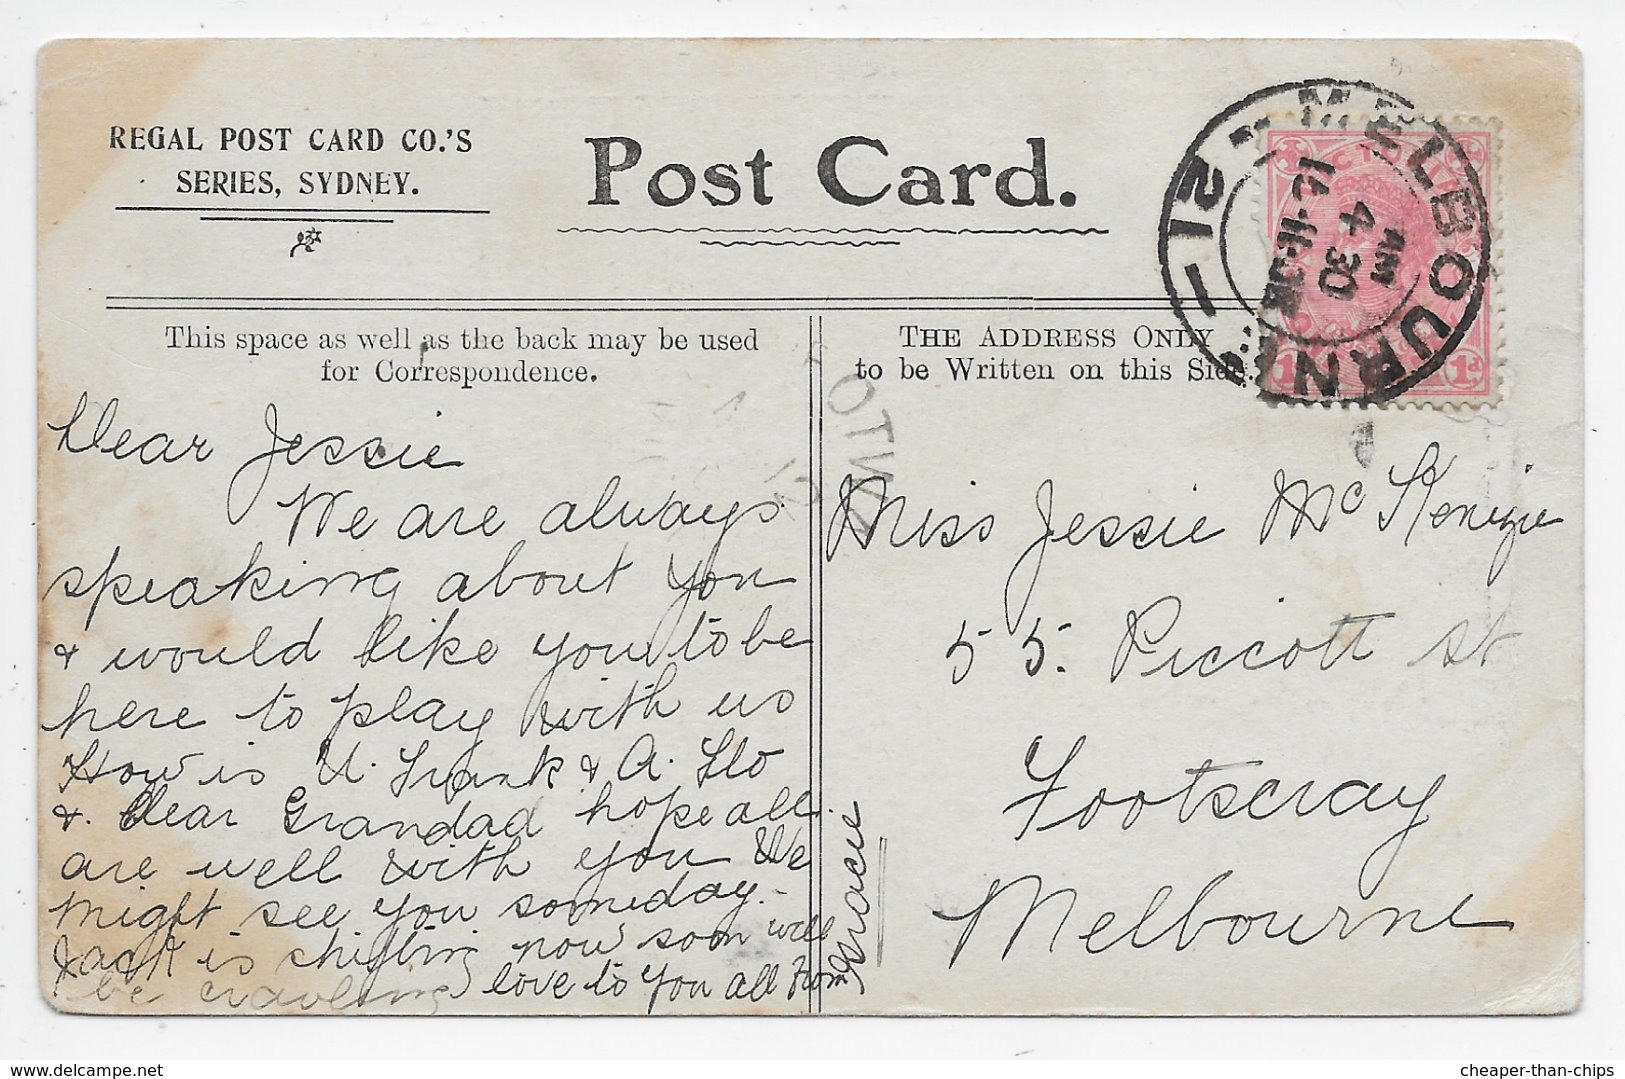 REGAL POST CARD CO.'S
SERIES, SYDNEY.
Post Card.
MELBOURNE
12
4 30
AM
1d
This space as well as the back may be used
for Correspondence.
THE ADDRESS ONLY
to be Written on this Side.
Dear Jessie
We are always
speaking about you
& would like you to be
here to play with us
How is U. Frank & A. Flo
& dear Grandad hope all
are well with you We
might see you someday.
Jack is shifting now soon will
be crawling love to you all From
Gracie
Miss Jessie McKenzie
55. Piccott St
Footscray
Melbourne
cheaper-than-chips